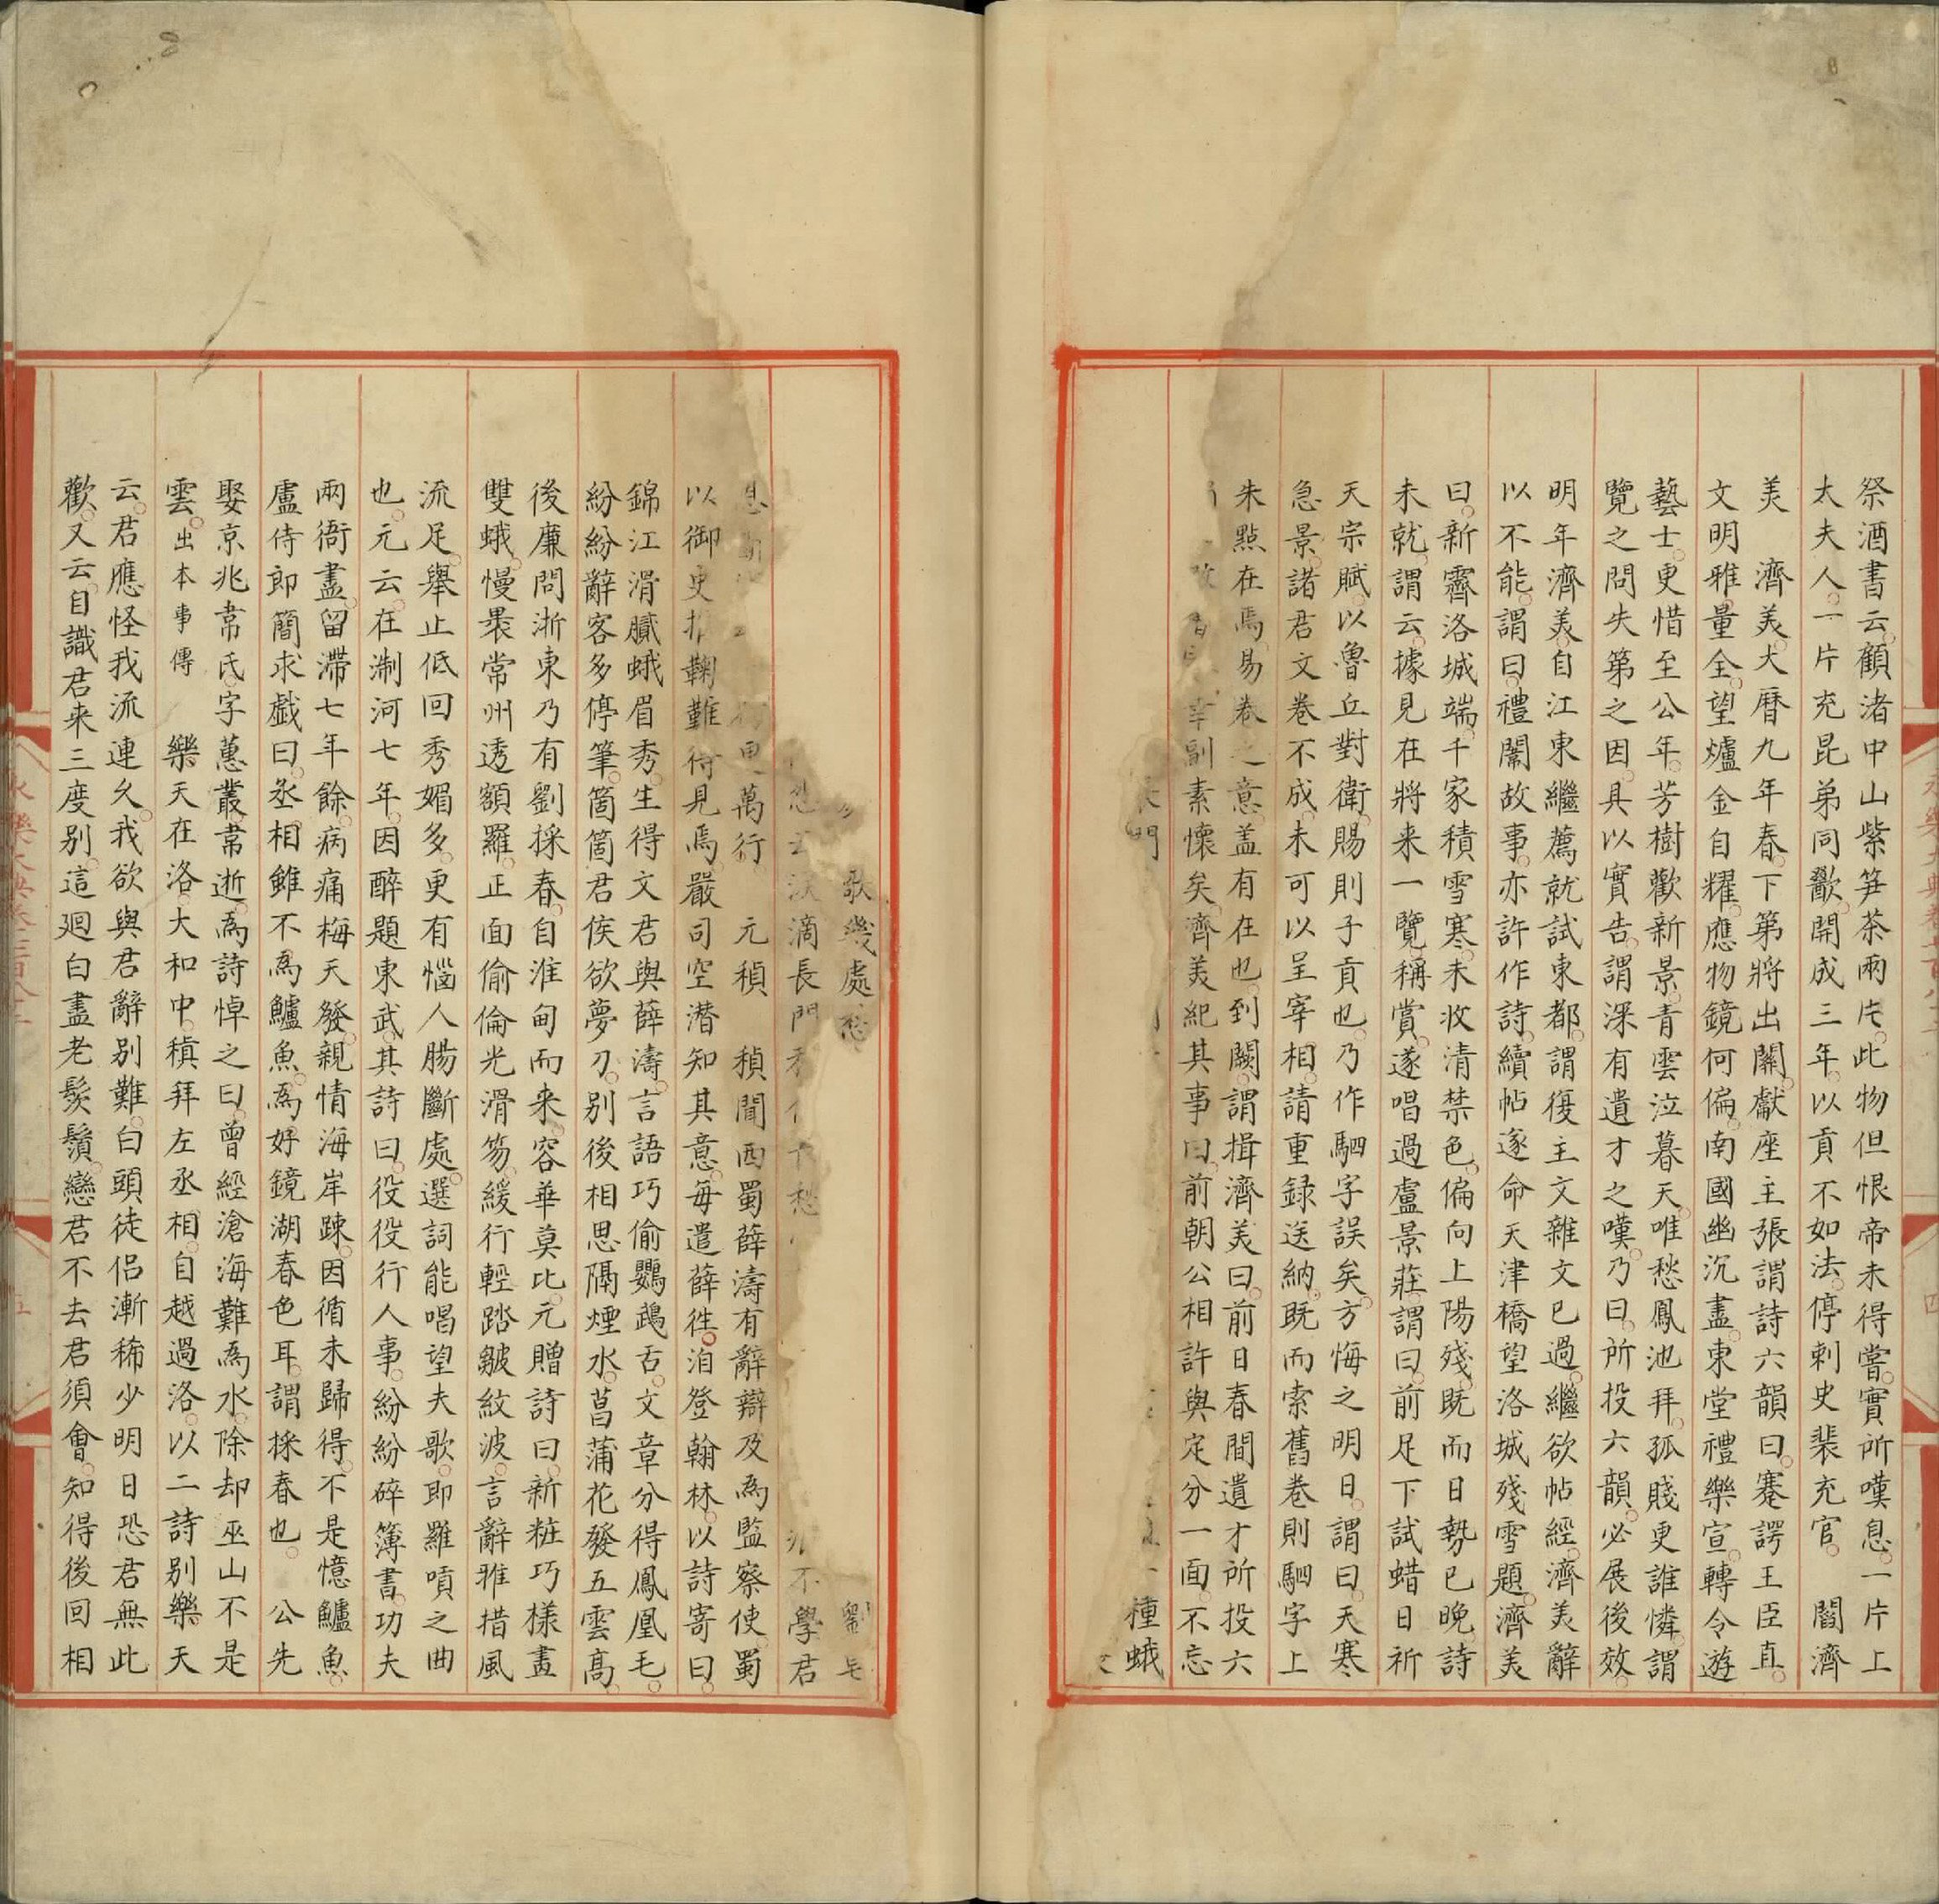 祭酒書云顧渚中山紫笋茶兩片此物但恨帝未得嘗實所嘆息一片上
太夫人一片充昆弟同歠開成三年以貢不如法停刺史裴充官　閻濟
美　濟美大曆九年春下第將出關獻座主張謂詩六韻曰蹇諤王臣直
文明雅量全望爐金自耀應物鏡何偏南國幽沉盡東堂禮樂宣轉令遊
藝士更惜至公年芳樹歡新景青雲泣暮天唯愁鳳池拜孤賤更誰憐謂
覽之問失第之因具以實告謂深有遺才之嘆乃曰所投六韻必展後效
明年濟美自江東繼薦就試東都謂復主文雜文已過繼欲帖經濟美辭
以不能謂曰禮闈故事亦許作詩續帖遂命天津橋望洛城殘雪題濟美
曰新霽洛城端千家積雪寒未收清禁色偏向上陽殘既而日勢已晚詩
未就謂云據見在將来一覽稱賞遂唱過盧景莊謂曰前足下試蜡日祈
天宗賦以魯丘對衛賜則子貢也乃作駟字誤矣方悔之明日謂曰天寒
急景諸君文卷不成未可以呈宰相請重録送納既而索舊卷則駟字上
朱點在焉易卷之意盖有在也到闕謂揖濟美曰前日春間遺才所投六
幸副素懷矣濟美紀其事曰前朝公相許與定分一面不忘
門種蛾
歌幾處愁劉
滴長門不學君
萬行　元稹　稹聞西蜀薛濤有辭辯及為監察使蜀
以御史推鞠難得見焉嚴司空潛知其意每遣薛徃洎登翰林以詩寄曰
錦江滑膩蛾眉秀生得文君與薛濤言語巧偷鸚鵡舌文章分得鳳凰毛
紛紛辭客多停筆箇箇君侯欲夢刀别後相思隔煙水菖蒲花發五雲髙
後廉問浙東乃有劉採春自淮甸而来容華莫比元贈詩曰新粧巧樣畫
雙蛾慢褁常州透額羅正面偷倫光滑笏緩行輕踏皺紋波言辭雅措風
流足舉止低回秀媚多更有惱人腸斷處選詞能唱望夫歌即羅嗊之曲
也元云在淛河七年因醉題東武其詩曰役役行人事紛紛碎簿書功夫
兩衙盡留滯七年餘病痛梅天發親情海岸踈因循未歸得不是憶鱸魚
盧侍郎簡求戲曰丞相雖不為鱸魚為好鏡湖春色耳謂採春也　公先
娶京兆韋氏字蕙叢韋逝為詩悼之曰曾經滄海難為水除却巫山不是
雲出本事傳　樂天在洛大和中稹拜左丞相自越過洛以二詩别樂天
云君應怪我流連久我欲與君辭别難白頭徒侣漸稀少明日恐君無此
歡又云自識君来三度别這廻白盡老髭鬚戀君不去君須會知得後回相